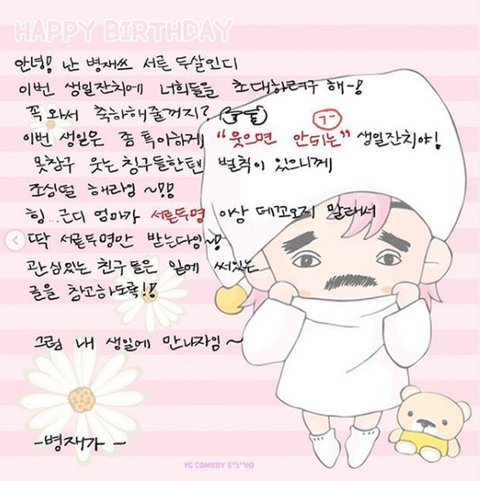 HAPPY BIRTHDAY
안녕! 난 병재쓰 서른 두살인디
이번 생일잔치에 너희들을 초대하려구 해~!
꼭 와서 축하해줄꺼지?
ㄱ-
이번 생일은 좀 특이하게 "웃으면 안되는" 생일잔치야!
못참구 웃는 칭구들한텐 벌칙이 있으니께
조심혈 해라잉~!!
힝...근디 엄마가 서른두명 이상 데꼬오지 말래서
딱 서른두명만 받는다잉~!
관심있는 친구들은 밑에 써있는
글을 참고하도록!!
그럼 내 생일에 만나자잉~
-병재가-
YG COMEDY STUDIO